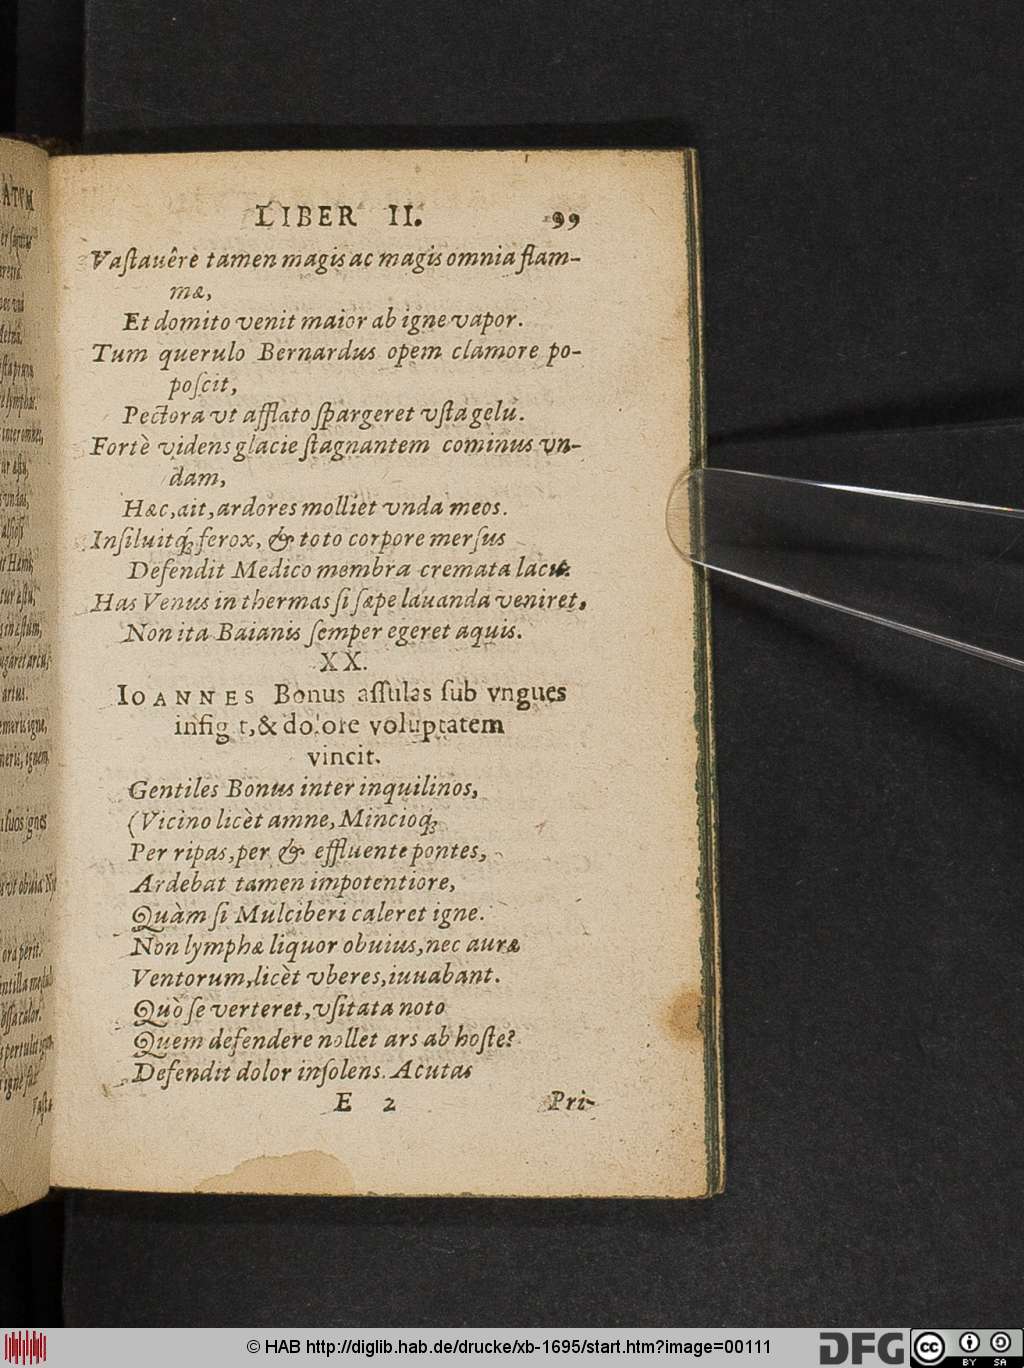 LIBER II. 99
Vaſtauêre tamen magis ac magis omnia flam-
mæ,
Et domito venit maior ab igne vapor.
Tum querulo Bernardus opem clamore po-
poſcit,
Pectora vt afflato ſpargeret vſta gelu.
Fortè videns glacie ſtagnantem cominus vn-
dam,
Hæc, ait, ardores molliet vnda meos.
Inſiluitq́; ferox, & toto corpore merſus
Defendit Medico membra cremata lacu.
Has Venus in thermas ſi ſæpe lauanda veniret,
Non ita Baianis ſemper egeret aquis.
XX.
IOANNES Bonus aſſulas ſub vngues
infig t, & dolore voluptatem
vincit.
Gentiles Bonus inter inquilinos,
(Vicino licèt amne, Mincioq́;
Per ripas, per & effluente pontes,
Ardebat tamen impotentiore,
Quàm ſi Mulciberi caleret igne.
Non lymphæ liquor obuius, nec auræ
Ventorum, licèt vberes, iuuabant.
Quò ſe verteret, vſitata noto
Quem defendere nollet ars ab hoſte?
Defendit dolor inſolens. Acutas
E 2 Pri-
© HAB http://diglib.hab.de/drucke/xb-1695/start.htm?image=00111
DFG
cc BY SA